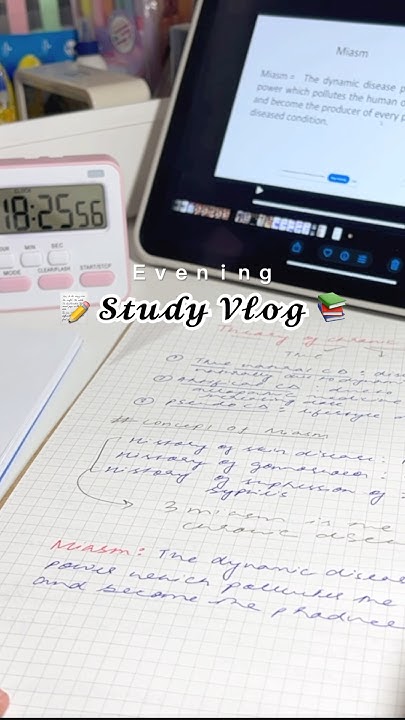 Miasm
Miasm = The dynamic disease p
power which pollutes the human o
and become the producer of every p
diseased condition.
CLOCK
18:25 56
HOUR MIN SEC
MODE CLEAR/FLASH START/STOP
Evening
📝 Study Vlog 📚
Theory of
True
① True natural CD :
② Artificial CD
③ Pseudo CD : lifestyle
# concept of Miasm
History of skin disease :
History of gonorrhoea :
History of supression of
syphilis
3 miasm is
chronic disea
Miasm : The dynamic diseas
power which pollutes the
and become the produce